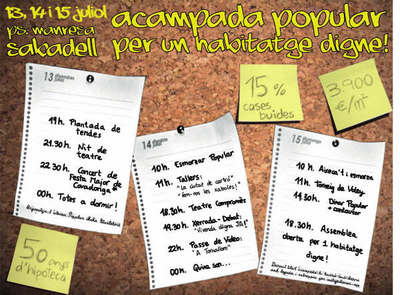 13, 14 i 15 juliol
ps. manresa
sabadell
acampada popular
per un habitatge digne!
15%
cases
buides
3.900
€/m²
13
19h. Plantada de
tendes
21.30h. Nit de
teatre
22.30h. Concert de
Festa Major de
Covadonga
00h. Totes a dormir!
14
10h. Esmorzar Popular
11h. Tallers:
"La ciutat de cartró"
18.30h. Teatre Compromès
19.30h. Xerrada-Debat:
"Vivenda digna JA!"
22h. Passe de Vídeo:
"A Tornallom"
00h. Quina son...
15
10h. Aixeca't i esmorza
11h. Torneig de Volley
14.30h. Dinar Popular
+ cantautor
18.30h. Assemblea
oberta per l'habitatge
digne!
50 anys
d'hipoteca